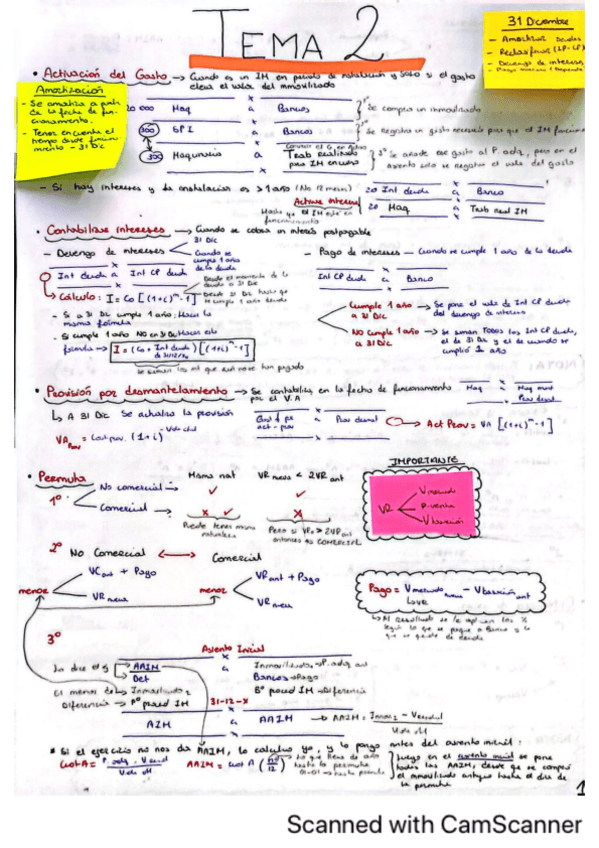 TEMA 2
31 Diciembre
- Amortizar
- Reclasificar (LP-CP)
- Devengo de intereses
• Activación del Gasto → Cuando es un IM en periodo de instalación y SOLO si el gasto
eleva el valor del inmovilizado
Amortización
- Se amortiza a partir
de la fecha de fun-
cionamiento.
- Tener en cuenta el
tiempo desde funcio
namiento - 31 Dic
20 000 Maq a Bancos
1º Se compra un inmovilizado
300 SPI a Bancos
2º Se registra un gasto necesario para que el IM funcione
300 Maquinaria a Trab realizado
para IM en curso
3º Se añade ese gasto al P. adq, pero en el
asiento solo se registra el valor del gasto
- Si hay intereses y la instalación es > 1 año (No 12 meses)
20 Int deuda a Banco
Activar interes
20 Maq a Trab real IM
Hasta que el IM esté en
funcionamiento
• Contabilizar intereses → Cuando se cobra un interés postpagable
- Devengo de intereses
31 Dic
Cuando se
cumpla 1 año
de la deuda
- Pago de intereses → Cuando se cumple 1 año de la deuda
Int deuda a Int CP deud
Int CP deud a Banco
→ Cálculo: I = Co [(1+i)ⁿ - 1]
Desde el momento de la
deuda a 31 Dic
Desde 31 Dic hasta que
se cumple 1 año deuda
- Si a 31 Dic cumple 1 año: Hacer la
misma fórmula
- Si cumple 1 año NO en 31 Dic: Hacer esta
fórmula → I = (Co + Int deuda) [(1+i)ⁿ - 1]
Se suman los int que aún no se han pagado
Cumple 1 año
a 31 Dic → Se pone el valor de Int CP deuda
del devengo de intereses
NO Cumple 1 año
a 31 Dic → Se suman TODOS los Int CP deuda,
el de 31 Dic y el de cuando se
cumplió 1 año
• Provisión por desmantelamiento → Se contabiliza en la fecha de funcionamiento
por el V.A
Maq a
Prov desmt
↳ A 31 Dic Se actualiza la provisión
a Prov desmt
→ Act Prov = VA [(1+i)ⁿ - 1]
IMPORTANTE
• Permuta
Misma nat
VR nuevo < 2VR ant
1º
No comercial → ✓ ✓
Comercial → ✗ ✓ ✗
Puede tener misma
naturaleza
Pero si VRn > 2VRant
entonces es COMERCIAL
VR
V mercado
P. venta
V tasación
2º No Comercial ↔ Comercial
menor
VC ant + Pago
VR nuevo
menor
VR ant + Pago
VR nuevo
Pago = V mercado nuevo - V tasación ant
↳ VR
3º
Asiento Inicial
Lo dice el ej
AAIM
Det
a
Inmovilizado 1 → P. adq ant
Bancos → Pago
Bº proced IM → Diferencia
El menor del → Inmovilizado 2
Diferencia → Pº proced IM
31-12-X
AIM a AAIM → AAIM = Inmov 2 - V residual
Vida útil
* Si el ejercicio no nos da AAIM, lo calculo yo, y lo pongo antes del asiento inicial:
Cuot A = P. adq - V resid
Vida útil
AAIM = cuot A (nº/12)
Lo que lleva de año
hasta la permuta
01-01 → hasta permuta
Luego en el asiento inicial se pone
todas las AAIM, desde que se compró
el inmovilizado antiguo hasta el día de
la permuta
1
Scanned with CamScanner